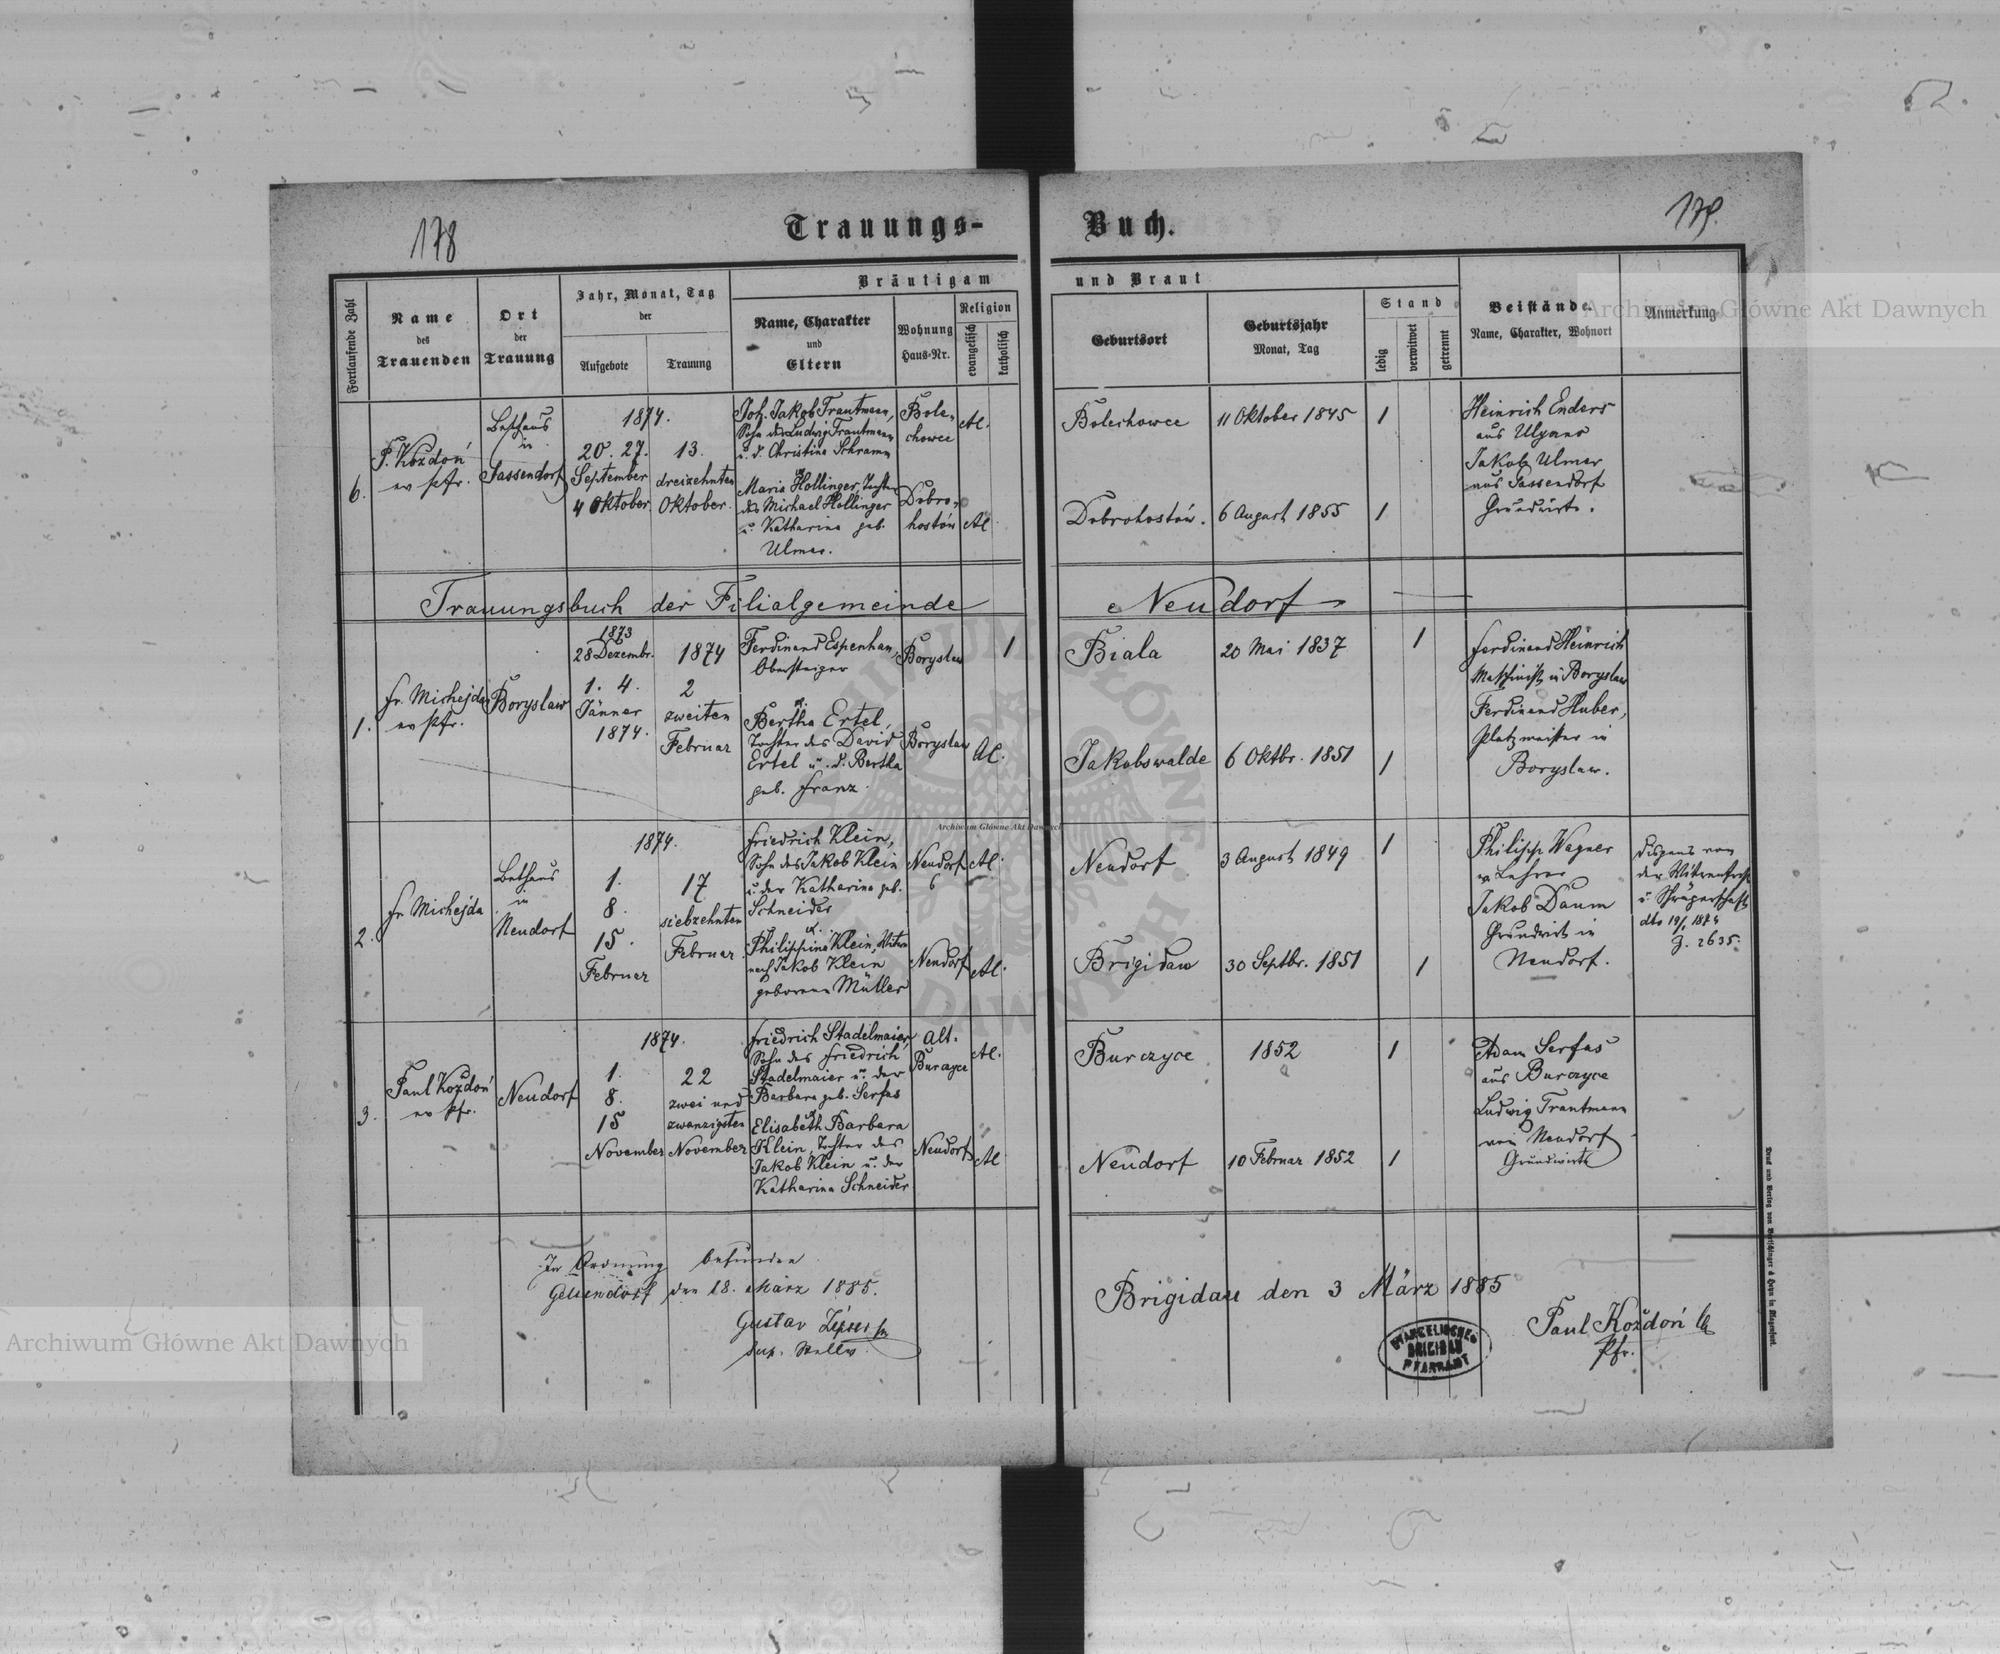 178
179.
Trauungs-
Buch.
Fortlaufende Zahl
Name
des
Trauenden
Ort
der
Trauung
Jahr, Monat, Tag
der
Aufgebote
Trauung
Bräutigam
und Braut
Name, Charakter
und
Eltern
Wohnung
Haus-Nr.
Religion
evangelisch
katholisch
Geburtsort
Geburtsjahr
Monat, Tag
Stand
ledig
verwitwet
getrennt
Beistände
Name, Charakter, Wohnort
Anmerkung
6.
P. Kozdoń
ev Pfr.
Bethaus
in
Sassendorf
1874.
20. 27.
September
4 Oktober
13.
dreizehnten
Oktober.
Joh. Jakob Trautmann,
Sohn des Ludwig Trautmann
u. d. Christina Schramm
Bole-
chowce
AC.
Bolechowce
11 Oktober 1845
1
Maria Hollinger, Tochter
des Michael Hollinger
u. Katharina geb.
Ulmer.
Dobro-
hostów
AC
Dobrohostów.
6 August 1855
1
Heinrich Enders
aus Ugans
Jakob Ulmer
aus Sassendorf
Grundwirte.
Trauungsbuch der Filialgemeinde
Neudorf
1.
Fr. Michejda
ev Pfr.
Boryslaw
1873
28 Dezembr.
1. 4.
Jänner
1874.
1874
2
zweiten
Februar
Ferdinand Espenhan,
Obersteiger
Boryslaw
1
Biala
20 Mai 1837
1
Bertha Ertel,
Tochter des David
Ertel u. d. Bertha
geb. Franz.
Boryslaw
AC.
Jakobswalde
6 Oktbr. 1851
1
Ferdinand Heinrich
Maschinist in Boryslaw
Ferdinand Huber,
Platzmeister in
Boryslaw.
2.
Fr Michejda
Bethaus
in
Neudorf
1874.
1.
8.
15.
Februar
17
siebzehnten
Februar.
Friedrich Klein,
Sohn des Jakob Klein
u. der Katharina geb.
Schneider
Neudorf
6
AC.
Neudorf
3 August 1849
1
Philippina Klein, Witwe
nach Jakob Klein
geborene Müller
Neudorf
AC.
Brigidau
30 Septbr. 1851
1
Philipp Wagner
Lehrer
Jakob Daum
Grundwirt in
Neudorf.
Dispens von
der Witwenfrist
u. Schwägerschaft
dto 19/1 1874
Z. 2635.
3.
Paul Kozdoń
ev Pfr.
Neudorf
1874.
1.
8.
15
November
22
zwei und
zwanzigsten
November
Friedrich Stadelmaier,
Sohn des Friedrich
Stadelmaier u. der
Barbara geb. Serfas
Alt-
Burczyce
AC.
Burczyce
1852
1
Elisabeth Barbara
Klein, Tochter des
Jakob Klein u. der
Katharina Schneider
Neudorf
AC
Neudorf
10 Februar 1852
1
Adam Serfas
aus Burczyce
Ludwig Trautmann
von Neudorf
Grundwirte
In Ordnung befunden
Gelsendorf den 18. März 1885.
Gustav Zipser
Sup. Stellv.
Brigidau den 3 März 1885
Paul Kozdoń
Pfr.
EVANGELISCHES
BRIGIDAU
PFARRAMT
Druck und Verlag von Bertschinger & Heyn in Klagenfurt.
Archiwum Główne Akt Dawnych
Archiwum Główne Akt Dawnych
Archiwum Główne Akt Dawnych
ARCHIWUM GŁÓWNE
AKT DAWNYCH